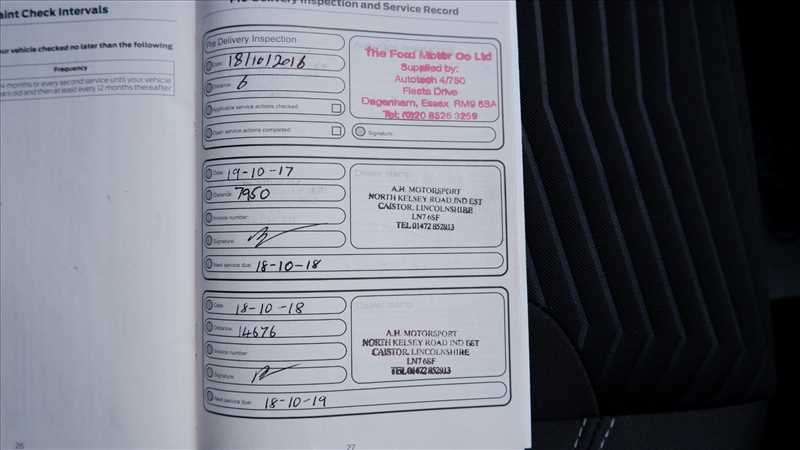 aint Check Intervals
our vehicle checked no later than the following
Frequency
months or every second service until your vehicle
ears old and then at least every 12 months thereafter
26
Delivery Inspection and Service Record
Pre Delivery Inspection
Date: 18/10/2016
Distance: 6
Applicable service actions checked
Open service actions completed
The Ford Motor Co Ltd
Supplied by:
Autotech 4/750
Fiesta Drive
Dagenham, Essex RM9 6SA
Tel: (0)20 8526 3259
Signature:
Date: 19-10-17
Distance: 7950
Invoice number:
Signature:
Next service due: 18-10-18
Dealer stamp
A.H. MOTORSPORT
NORTH KELSEY ROAD IND EST
CAISTOR, LINCOLNSHIRE
LN7 6SF
TEL 01472 852913
Date: 18-10-18
Distance: 14676
Invoice number:
Signature:
Next service due: 18-10-19
Dealer stamp
A.H. MOTORSPORT
NORTH KELSEY ROAD IND EST
CAISTOR, LINCOLNSHIRE
LN7 6SF
TEL 01472 852913
27